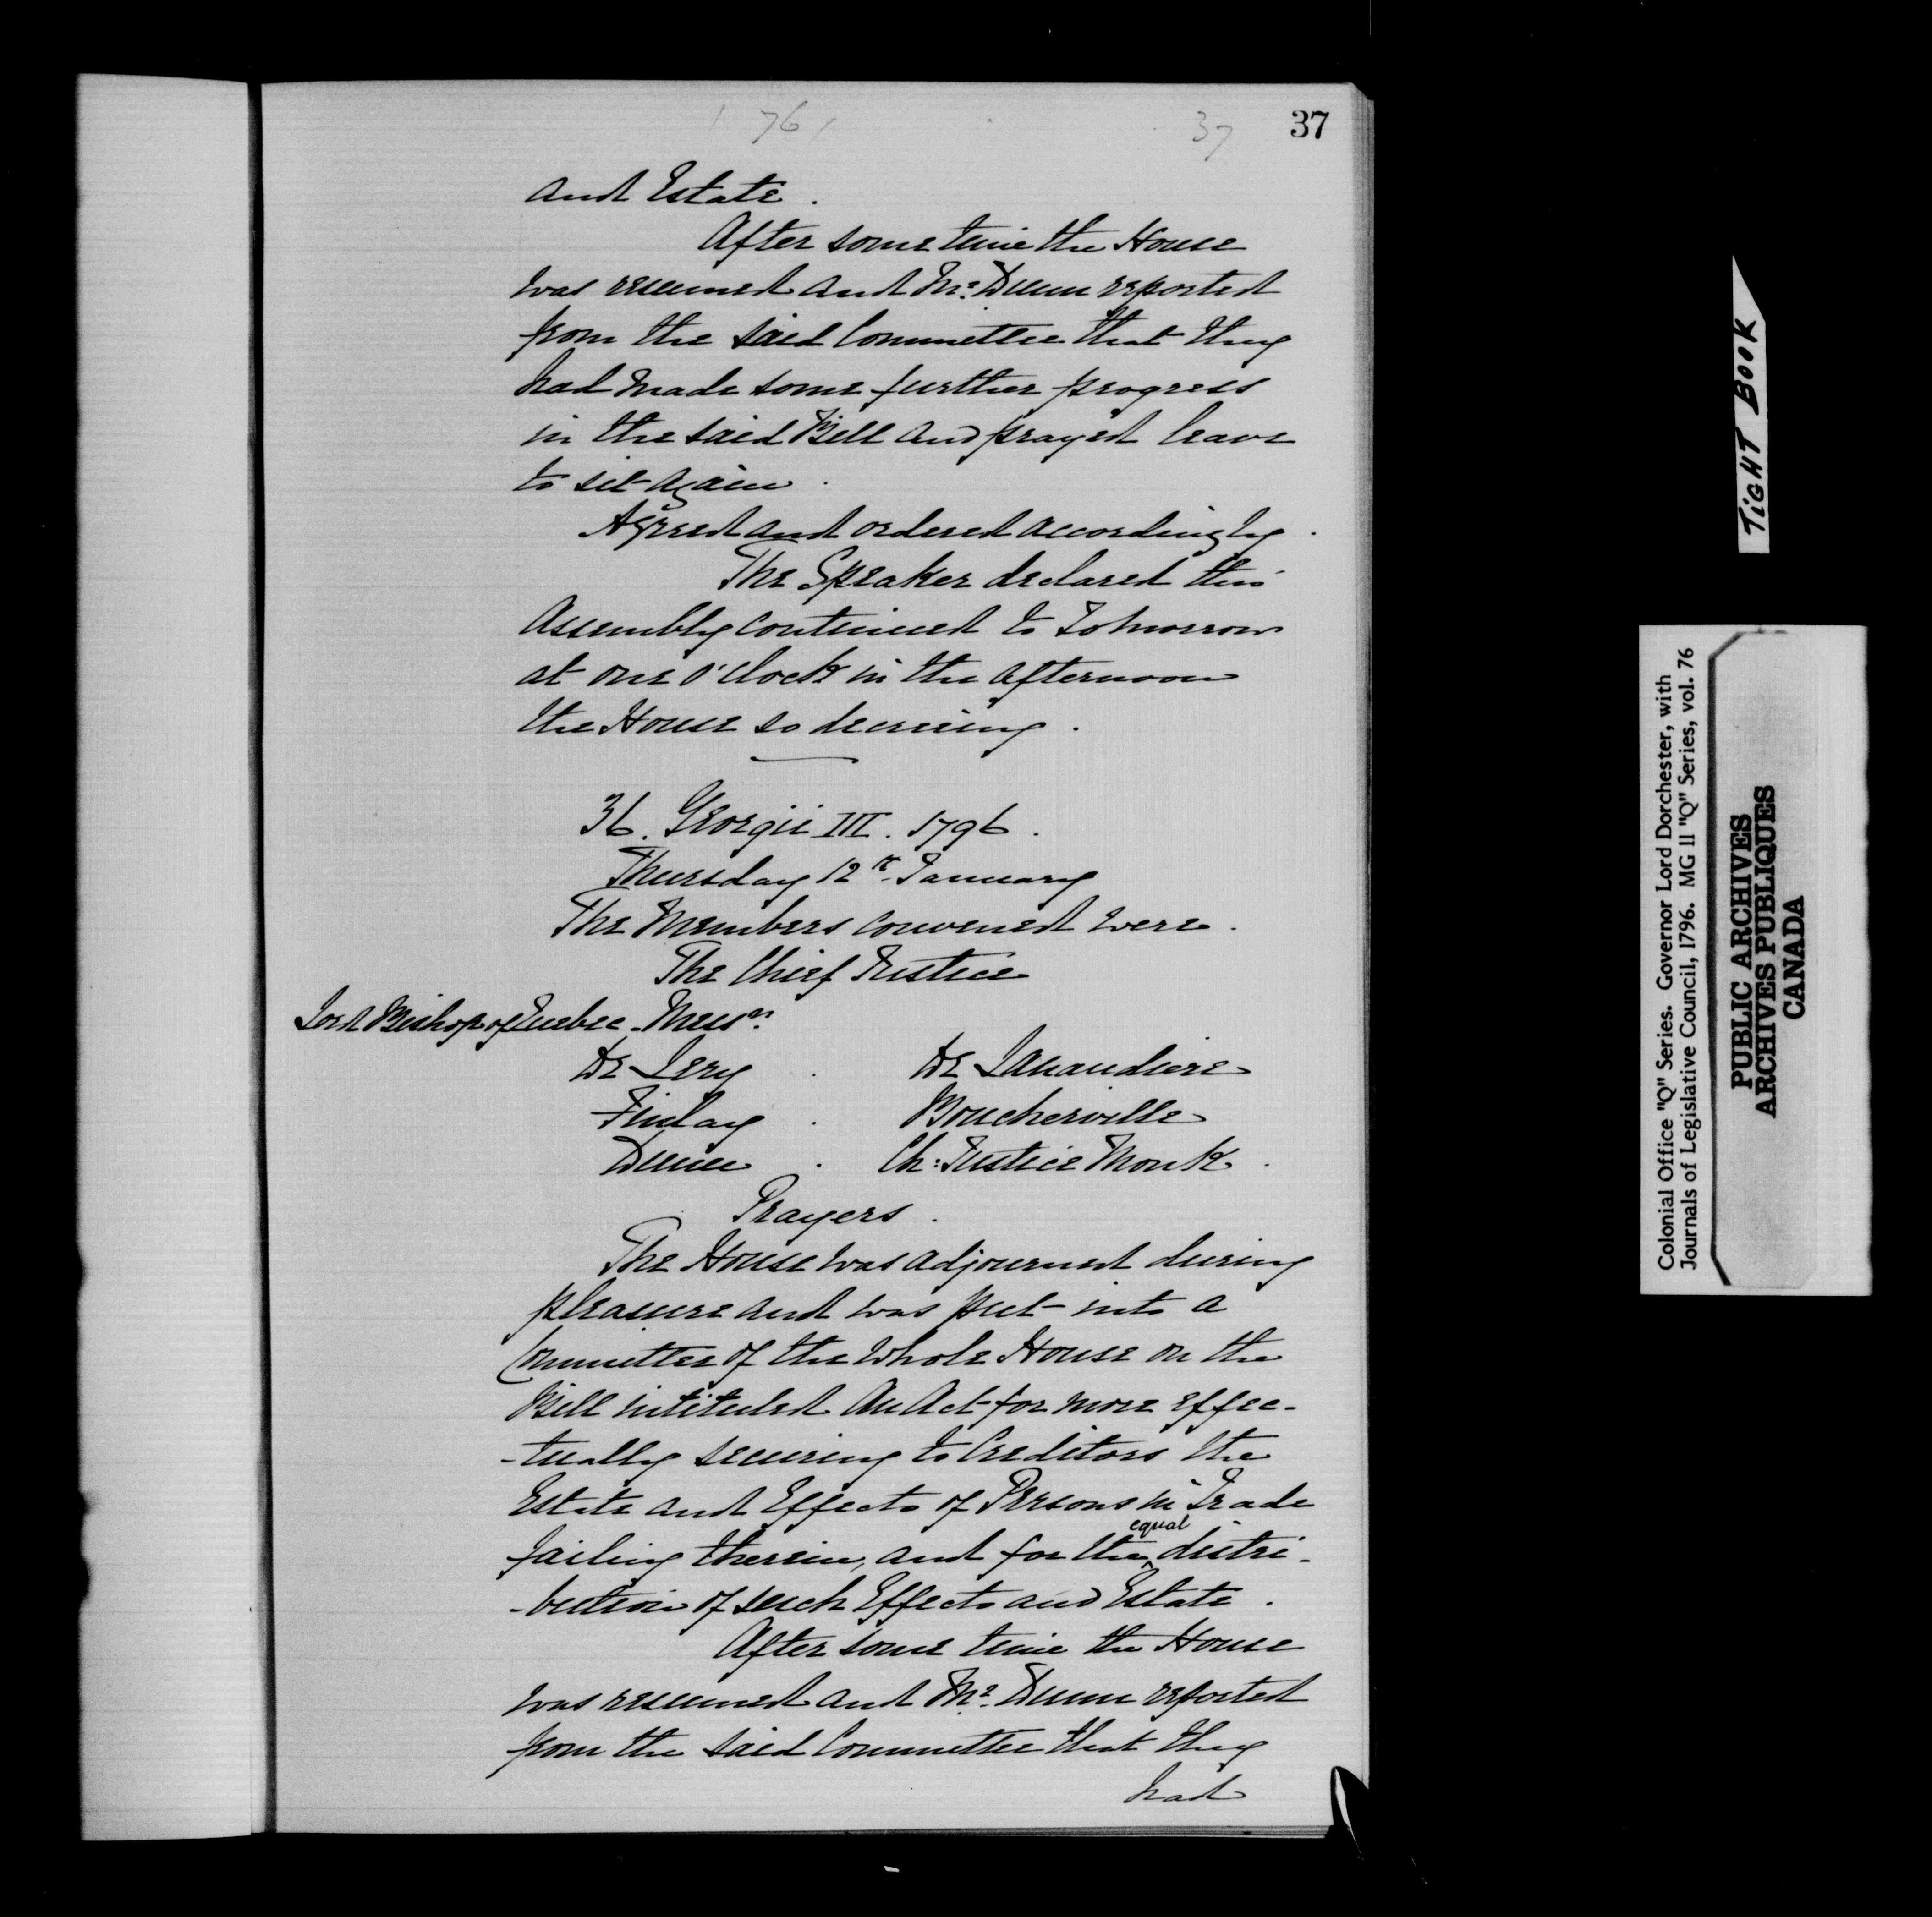 76
37
37
and Estate.
After some time the House
was resumed and Mr. Dunn reported
from the said Committee that they
had made some further progress
in the said Bill and prayed leave
to sit again.
Agreed and ordered accordingly.
The Speaker declared this
Assembly continued to Tomorrow
at one o'Clock in the afternoon
the House so decreeing.
36. Georgii III. 1796.
Thursday 12th January
The Members convened were.
The Chief Justice
Lord Bishop of Quebec. Messrs.
De Lery . De Lanaudiere
Finlay . Boucherville
Dunn . Ch: Justice Monk.
Prayers.
The House was adjourned during
pleasure and was put into a
Committee of the Whole House on the
Bill intituled An Act for more effec-
-tually securing to Creditors the
Estate and Effects of Persons in Trade
failing therein, and for the ^equal distri-
-bution of such Effects and Estate.
After some time the House
was resumed and Mr. Dunn reported
from the said Committee that they
had
TiGHT BOOK
Colonial Office "Q" Series. Governor Lord Dorchester, with
Journals of Legislative Council, 1796. MG 11 "Q" Series, vol. 76
PUBLIC ARCHIVES
ARCHIVES PUBLIQUES
CANADA